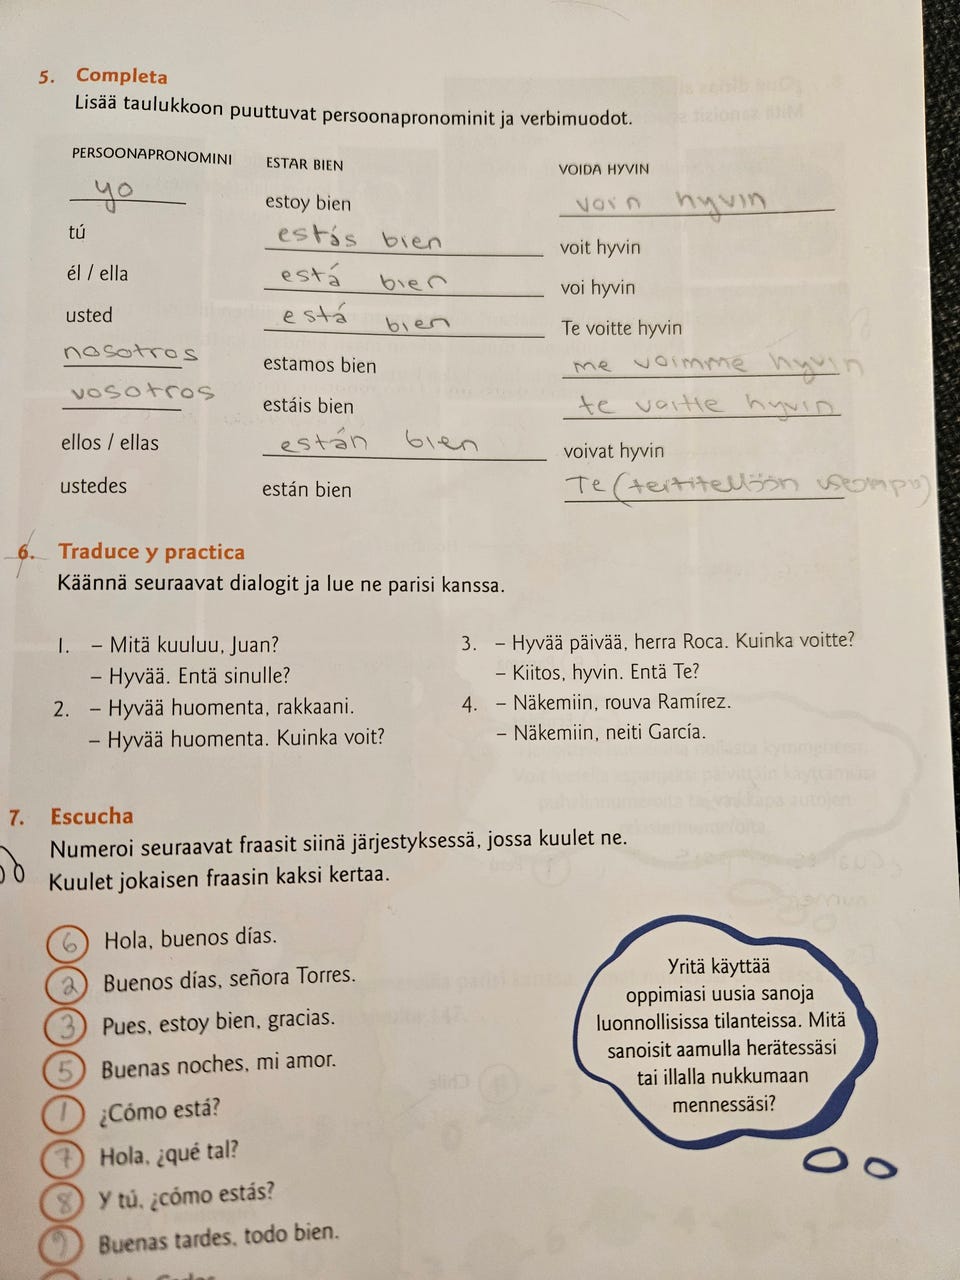 5. Completa
Lisää taulukkoon puuttuvat persoonapronominit ja verbimuodot.
PERSOONAPRONOMINI ESTAR BIEN VOIDA HYVIN
yo estoy bien voin hyvin
tú estás bien voit hyvin
él / ella está bien voi hyvin
usted está bien Te voitte hyvin
nosotros estamos bien me voimme hyvin
vosotros estáis bien te voitte hyvin
ellos / ellas están bien voivat hyvin
ustedes están bien Te (teititellöön
6. Traduce y practica
Käännä seuraavat dialogit ja lue ne parisi kanssa.
1. – Mitä kuuluu, Juan?
– Hyvää. Entä sinulle?
2. – Hyvää huomenta, rakkaani.
– Hyvää huomenta. Kuinka voit?
3. – Hyvää päivää, herra Roca. Kuinka voitte?
– Kiitos, hyvin. Entä Te?
4. – Näkemiin, rouva Ramírez.
– Näkemiin, neiti García.
7. Escucha
Numeroi seuraavat fraasit siinä järjestyksessä, jossa kuulet ne.
Kuulet jokaisen fraasin kaksi kertaa.
6 Hola, buenos días.
2 Buenos días, señora Torres.
3 Pues, estoy bien, gracias.
5 Buenas noches, mi amor.
1 ¿Cómo está?
7 Hola, ¿qué tal?
8 Y tú, ¿cómo estás?
9 Buenas tardes, todo bien.
Yritä käyttää
oppimiasi uusia sanoja
luonnollisissa tilanteissa. Mitä
sanoisit aamulla herätessäsi
tai illalla nukkumaan
mennessäsi?